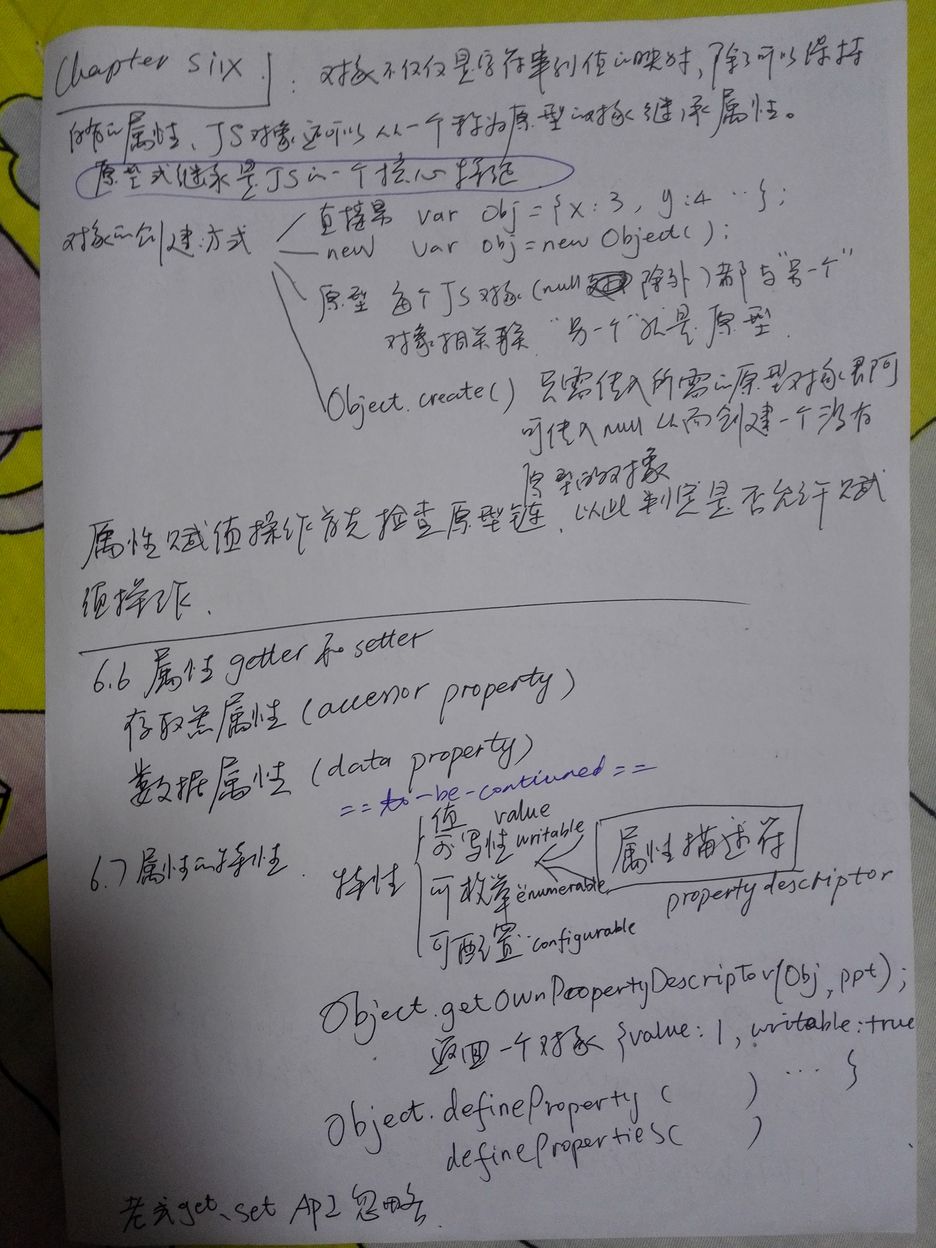 Chapter Six. : 对象不仅仅是字符串到值的映射, 除了可以保持
自有的属性、JS对象还可以从一个称为原型的对象继承属性。
原型式继承是JS的一个核心特征
对象的创建方式
直接量 var obj = {x:3, y:4 …};
new var obj = new Object();
原型 每个JS对象(null 除外)都与"另一个"
对象相关联 "另一个"就是原型.
Object.create() 只需传入所需的原型对象即可
可传入null从而创建一个没有
原型的对象
属性赋值操作首先检查原型链, 以此判定是否允许赋
值操作.
6.6 属性getter和setter
存取器属性 (accessor property)
数据属性 (data property)
==to-be-contiuned==
6.7 属性的特性.
特性
值 value
可写性 writable
可枚举 enumerable
可配置 configurable
属性描述符
property descriptor
Object.getOwnPropertyDescriptor(Obj, ppt);
返回一个对象 {value: 1, writable: true
… }
Object.defineProperty ( )
defineProperties( )
老式get、set API 忽略.